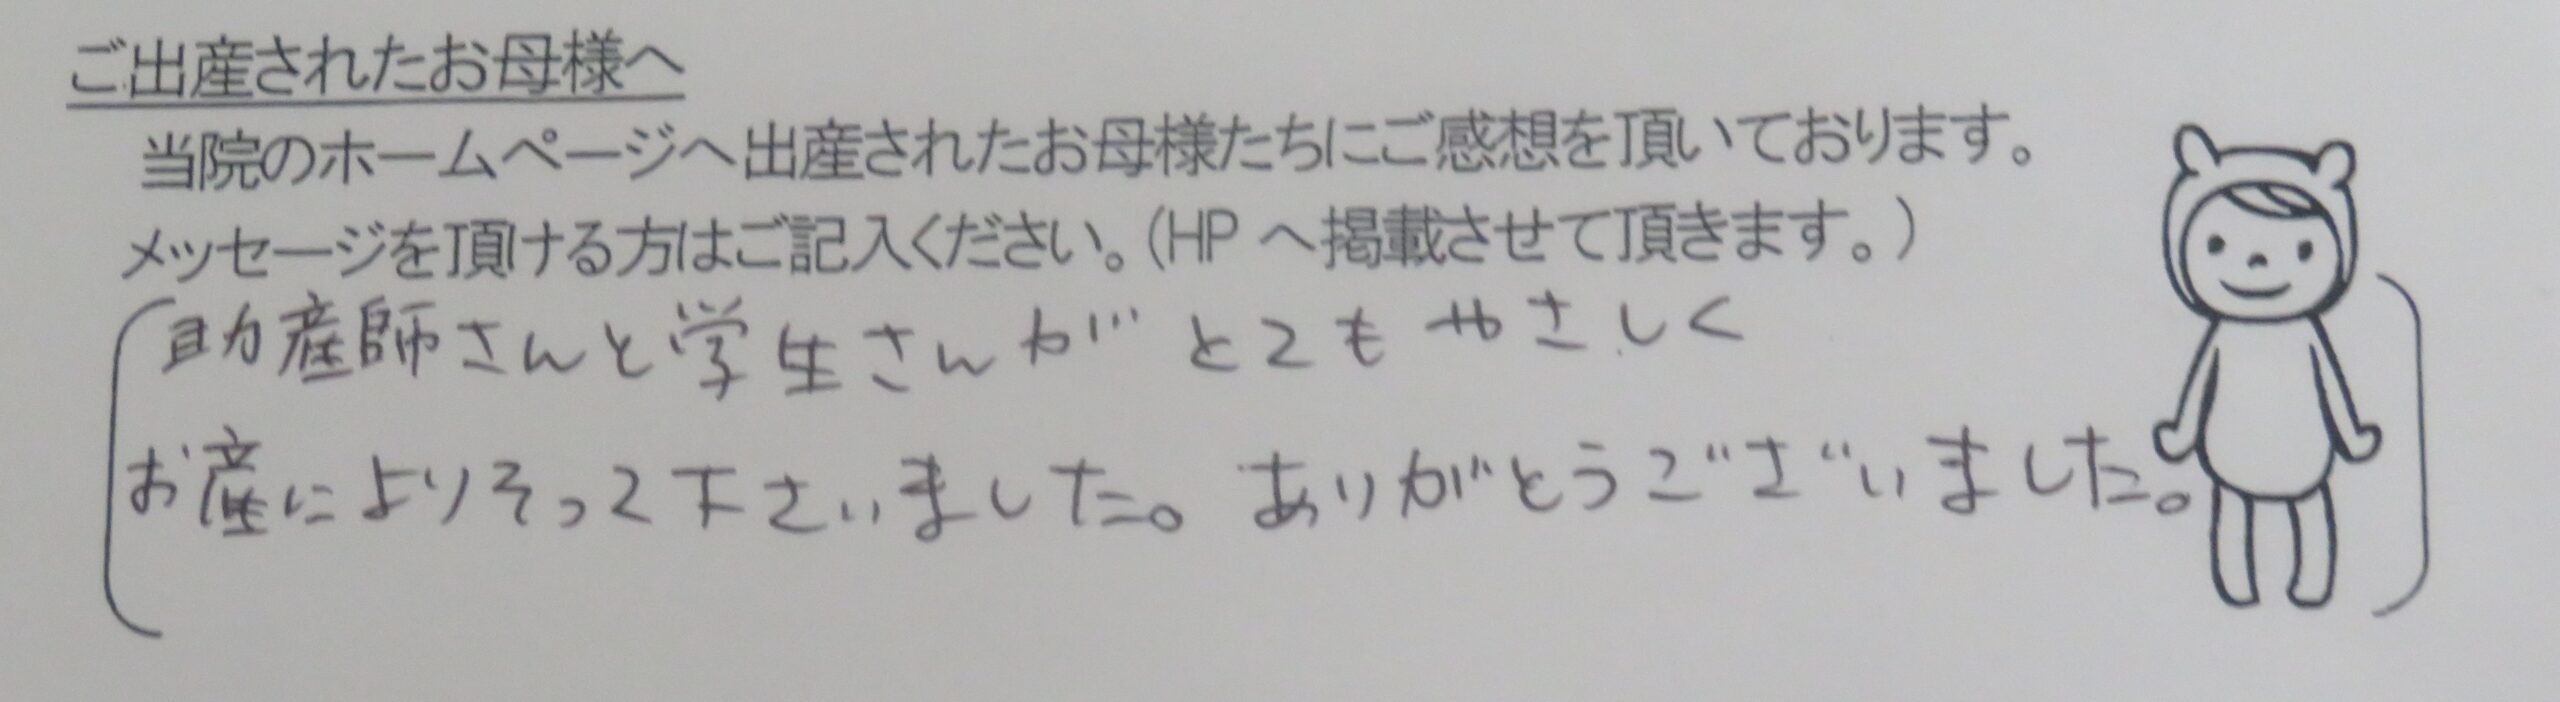 ご出産されたお母様へ
当院のホームページへ出産されたお母様たちにご感想を頂いております。
メッセージを頂ける方はご記入ください。(HP へ掲載させて頂きます。)
助産師さんと学生さんが とてもやさしく
お産によりそって下さいました。ありがとうございました。